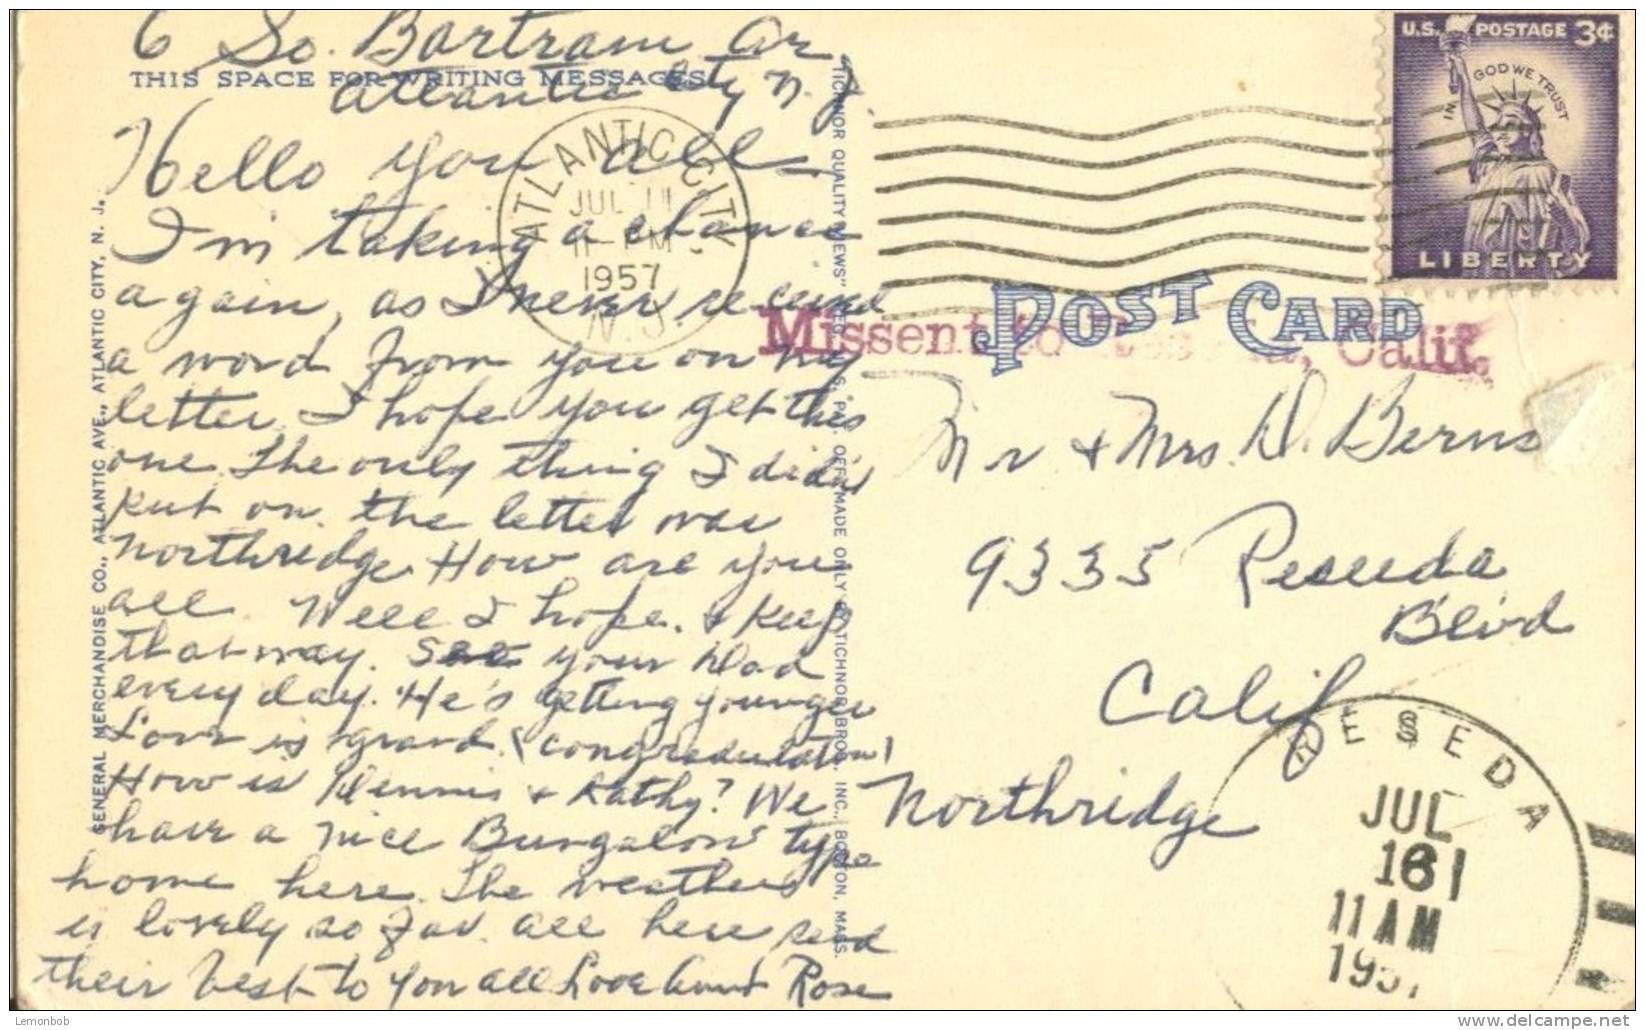 6 So. Bartram Av
THIS SPACE FOR WRITING MESSAGES
Atlantic City N.J.
Hello you all
I'm taking a chance
again, as I never received
a word from you on my
letter. I hope you get this
one. The only thing I didn't
put on the letter was
Northridge. How are you
all. Well I hope. & keep
that way. See your Dad
every day. He's getting younger
Love is grand. (congradulation)
How is Dennis & Kathy? We
have a nice Bungalow type
home here. The weather
is lovely so far. All here send
their best to you all Love Aunt Rose
GENERAL MERCHANDISE CO., ATLANTIC AVE., ATLANTIC CITY, N. J.
ATLANTIC CITY
JUL 11
11 PM
1957
N.J.
U.S. POSTAGE 3¢
IN GOD WE TRUST
LIBERTY
POST CARD
Missent to Reseda, Calif.
Mr & Mrs. D. Berns
9335 Reseuda
Blvd
Calif
Northridge
RESEDA
JUL
16
11 AM
1957
Lemonbob
www.delcampe.net